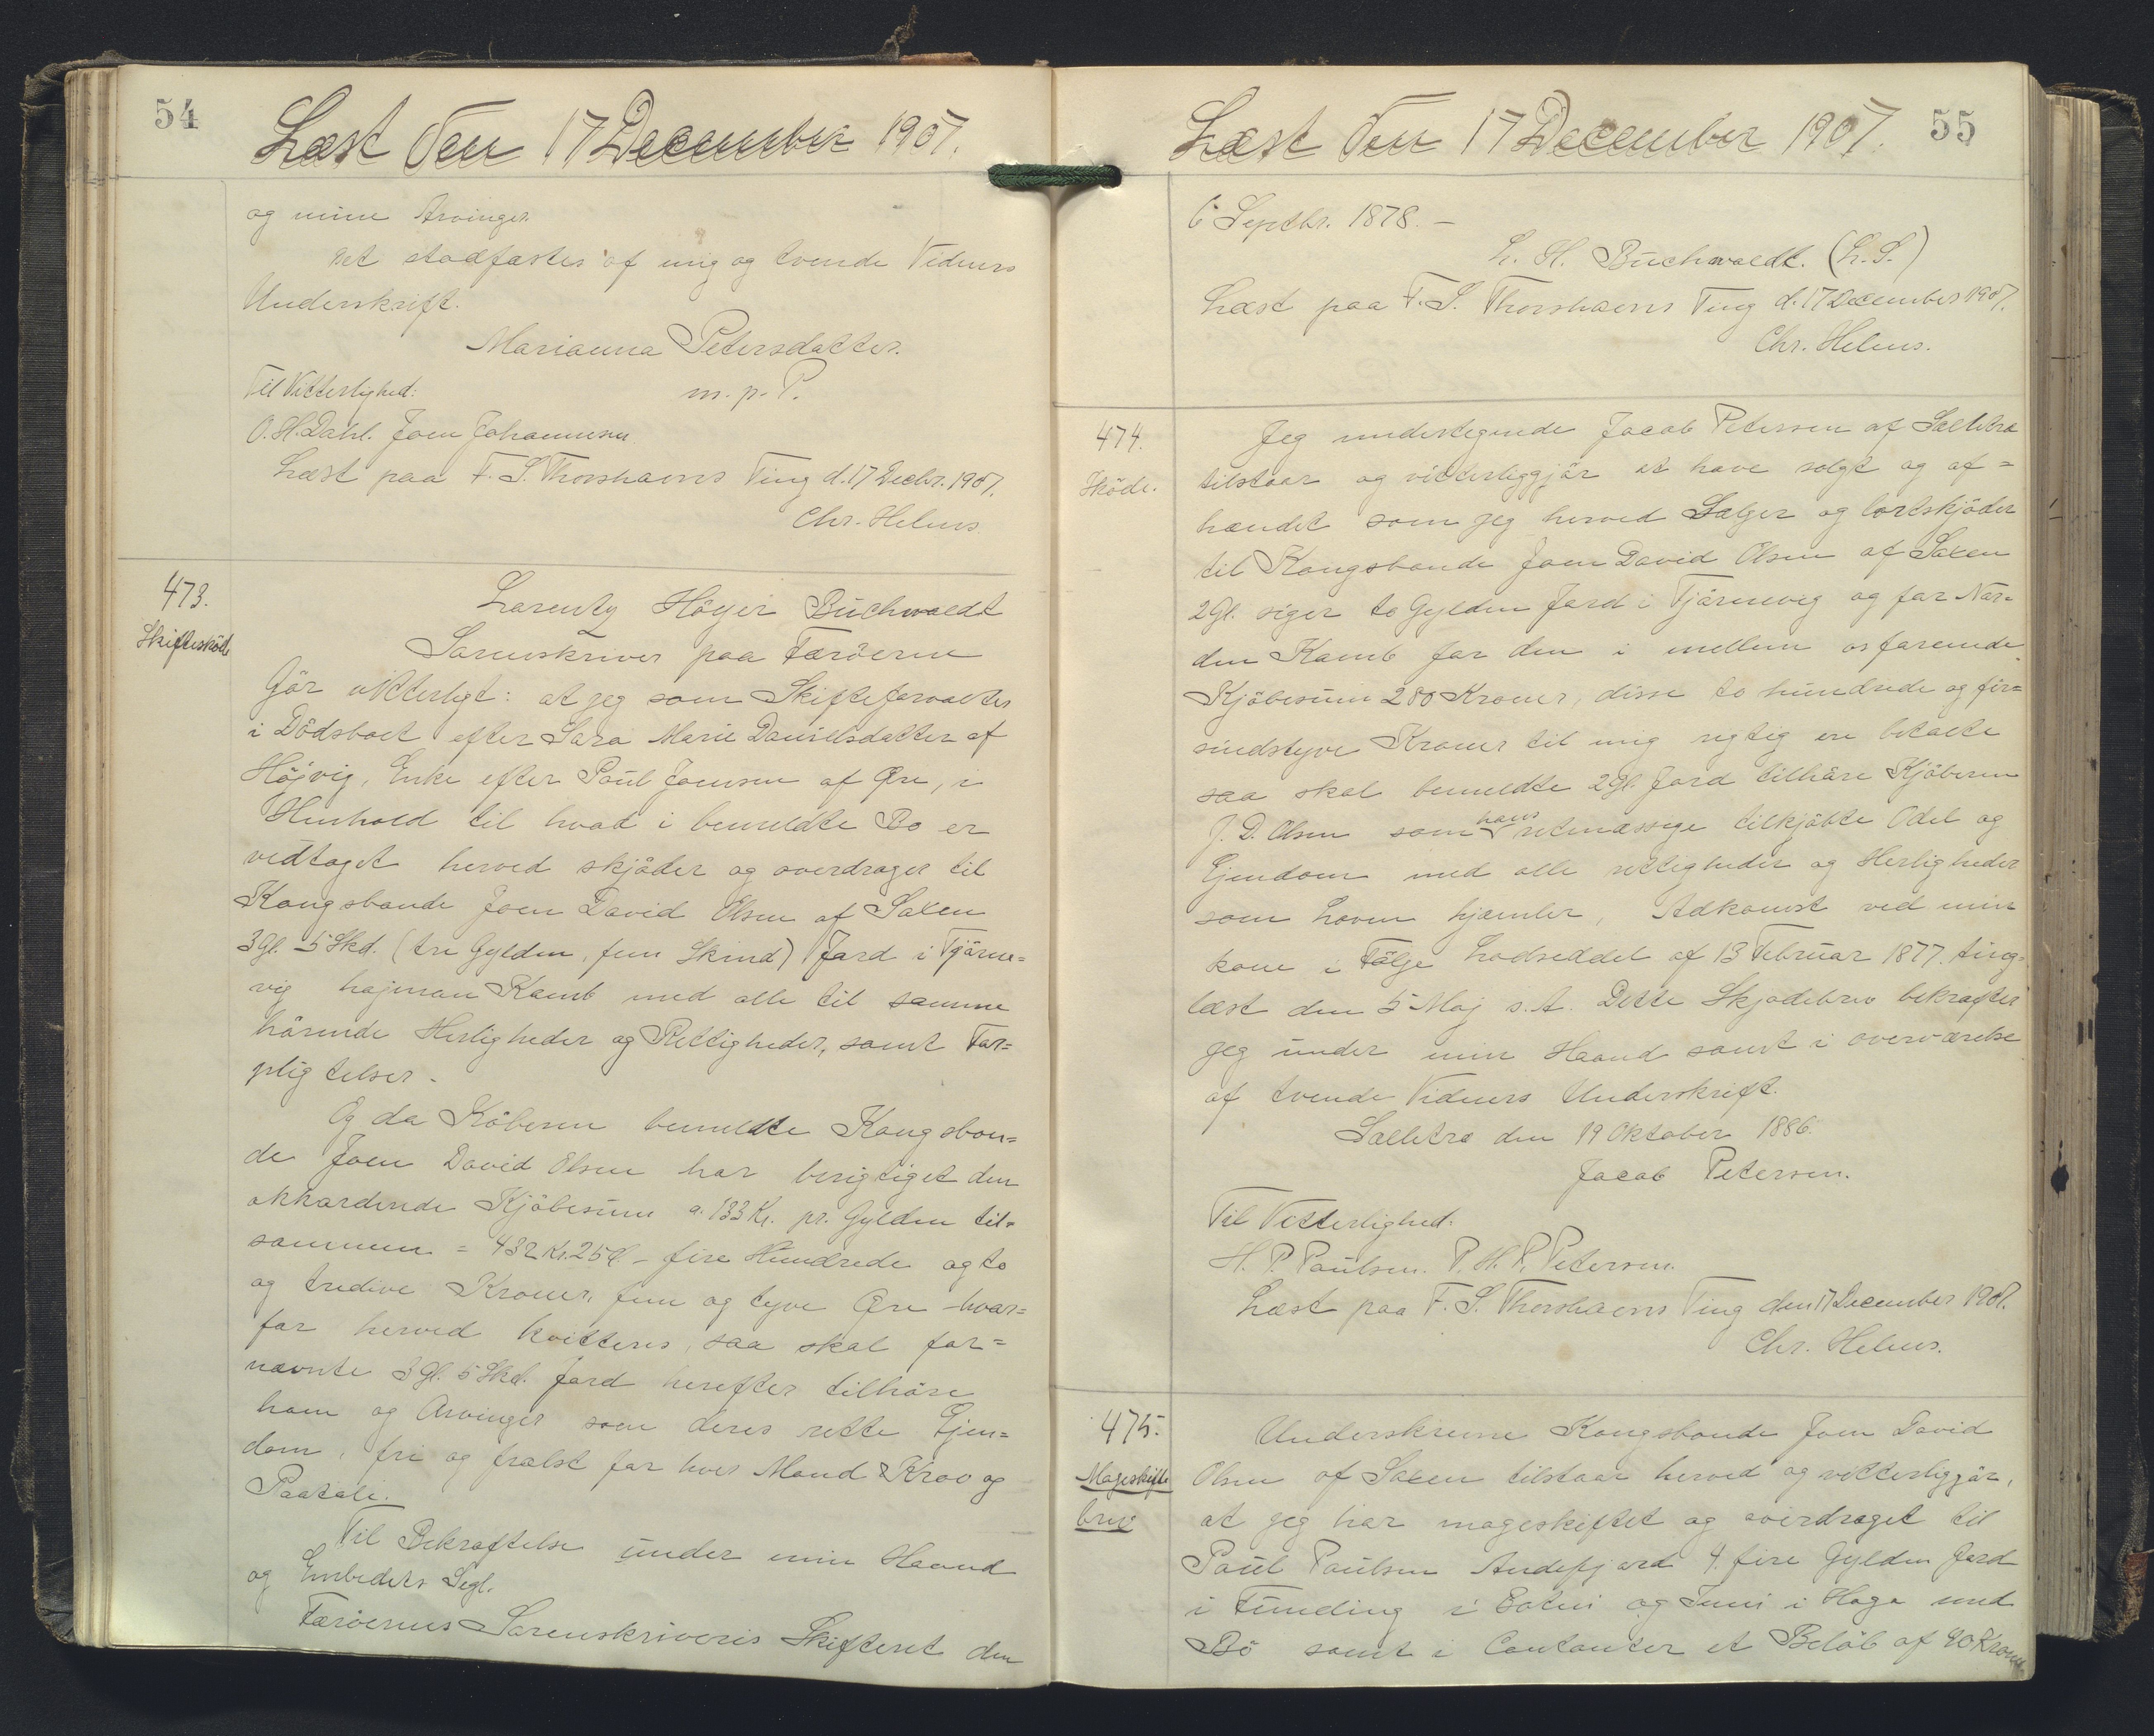 54
Læst den 17 December 1907.
og mine Arvinger.
Det stadfæstes af mig og tvende Vidners
Underskrift.
Marianna Petersdatter.
m. p. P.
Til Vitterlighed:
O. H. Dahl. Joen Johannesen
Læst paa F. S. Thorshavns Ting d. 17 Decbr. 1907.
Chr. Helms
473.
Skifteskøde
Lorentz Höyer Buchwaldt
Sorenskriver paa Færöerne
Gör vitterligt: at jeg som Skifteforvalter
i Dödsboet efter Sara Marie Danielsdatter af
Höjvig, Enke efter Poul Joensen af Øre, i
Henhold til hvad i bemeldte Bo er
vedtaget herved skjöder og overdrager til
Kongsbonde Joen David Olsen af Saxen
3 Gl. 5 Skd. (tre Gylden, fem Skind) Jord i Tjörne=
vig hajman Kamb med alle til samme
hörende Herligheder og Rettigheder, samt For=
pligtelser.
Og da Köberen bemeldte Kongsbon=
de Joen David Olsen har berigtiget den
akkorderede Kjöbesum a. 133 Kr. pr. Gylden til=
sammen = 432 Kr. 25 Ø - fire Hundrede og to
og tredive Kroner, fem og tyve Øre - hvor=
for herved kvitteres, saa skal for=
nævnte 3 Gl. 5 Skd. Jord herefter tilhöre
ham og Arvinger som deres rette Ejen=
dom, fri og frælst for hver Mand Krav og
Paatale.
Til Bekræftelse under min Haand
og Embedets Segl.
Færöernes Sorenskriveris Skifteret den
Læst den 17 December 1907. 55
6 Septbr. 1878. -
L. H. Buchwaldt. (L. S.)
Læst paa F. S. Thorshavns Ting d. 17 December 1907.
Chr. Helms.
474.
Sköde.
Jeg undertegnede Jacob Petersen af Selletræ
tilstaar og vitterliggjör at have solgt og af=
hændet som jeg herved Sælger og bortskjöder
til Kongsbonde Joen David Olsen af Saxen
2 Gl. siger to Gylden Jord i Tjörnevig og for Nor=
den Kamb for den i mellem os forenede
Kjöbesum 280 Kroner, disse to hundrede og fir=
sindstyve Kroner til mig rigtig ere betalte
saa skal bemeldte 2 Gl. Jord tilhöre Kjöberen
J. D. Olsen som hans retmæssige tilkjöbte Odel og
Ejendom med alle rettigheder og Herligheder
som Loven hjemler, Adkomst ved min
kone i Fölge Lodseddel af 13 Februar 1877 ting=
læst den 5 Maj s. A. Dette Skjødebrev bekræfter
jeg under min Haand samt i overværelse
af tvende Vidners Underskrift.
Selletræ den 19 Oktober 1886.
Jacob Petersen.
Til Vitterlighed:
H. P. Poulsen. P. H. P. Petersen.
Læst paa F. S. Thorshavns Ting den 17 December 1907.
Chr. Helms.
475.
Mageskifte
brev
Underskrevne Kongsbonde Joen David
Olsen af Saxen tilstaar herved og vitterliggjör,
at jeg har mageskiftet og overdraget til
Poul Poulsen Andefjord 4. fire Gylden Jord
i Funding i og i Haga med
Bö samt i Contanter et Belöb af 90 Kroner